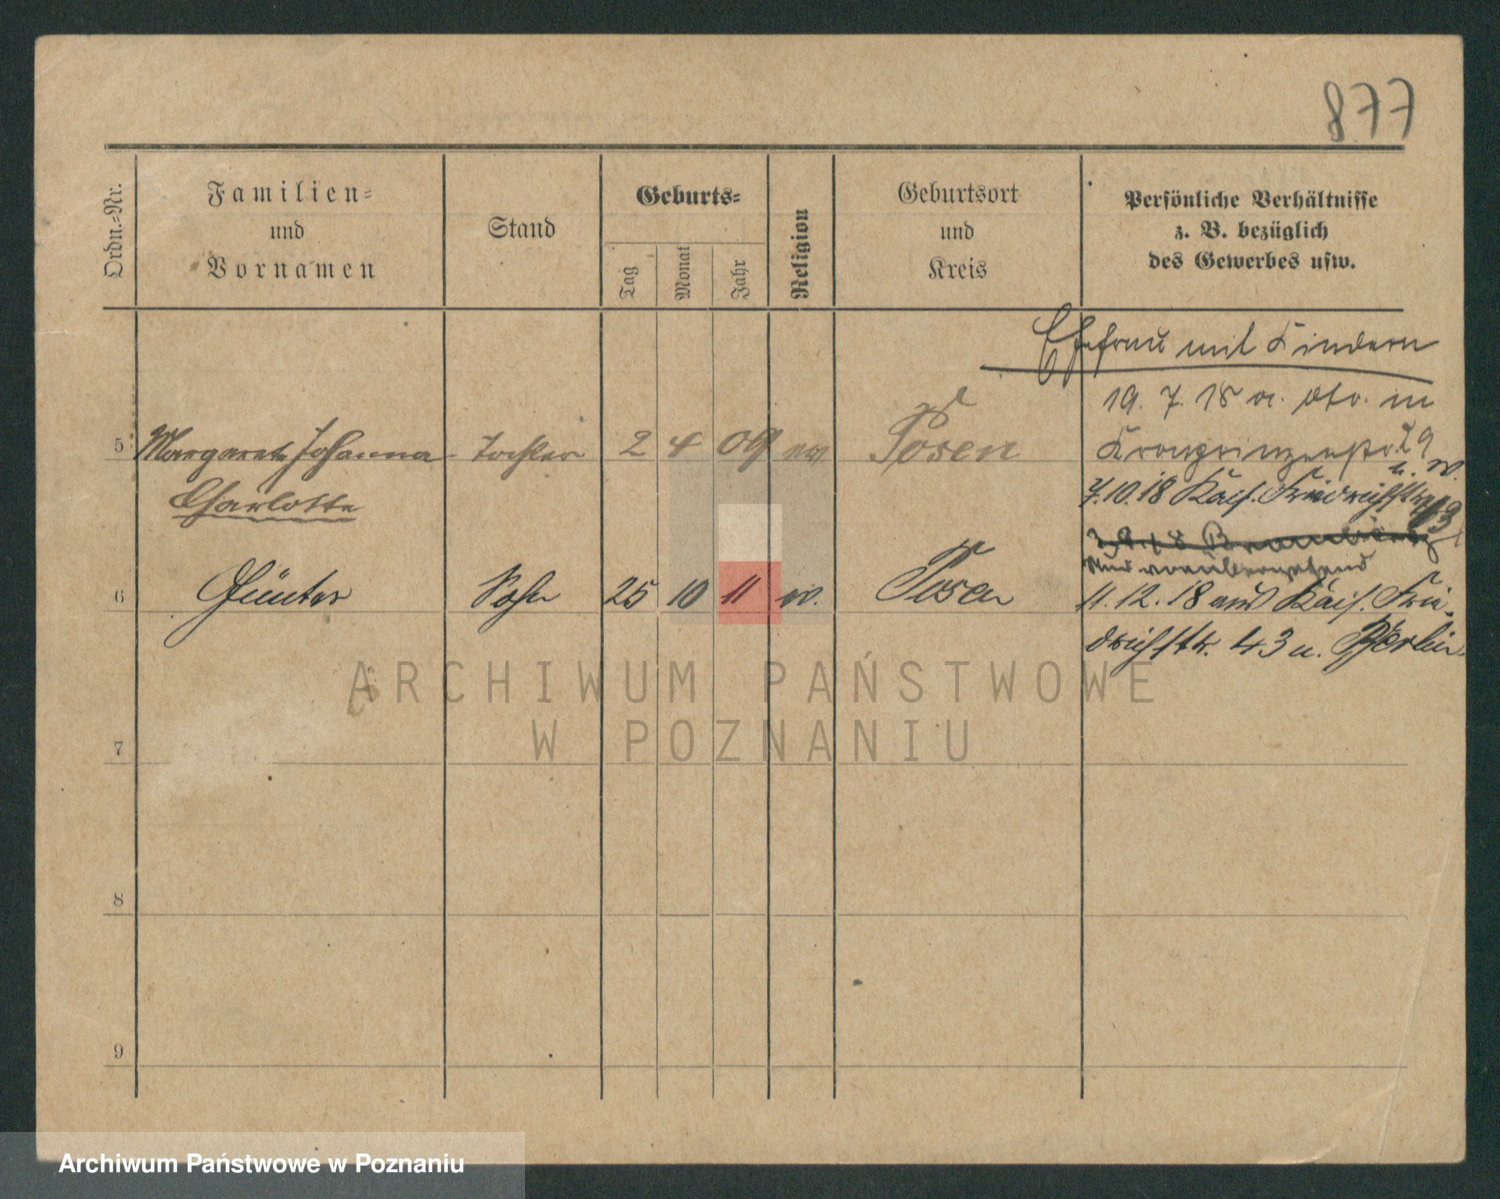 877
Ordn.-Nr.
Familien-
und
Vornamen
Stand
Geburts-
Tag
Monat
Jahr
Religion
Geburtsort
und
Kreis
Persönliche Verhältnisse
z. B. bezüglich
des Gewerbes usw.
Ehefrau mit Kindern
19. 7. 18 in
5 Margarete Johanna Tochter 2 4 09 ev Posen
Charlotte
Kronprinzenstr 29
7.10.18 Kais. Friedrichstr 43
Nur vorübergehend
6 Günter Sohn 25 10 11 ev. Posen
11. 12. 18 aus Kais. Frie-
drichstr. 43 n. Berlin
7
8
9
ARCHIWUM PAŃSTWOWE
W POZNANIU
Archiwum Państwowe w Poznaniu